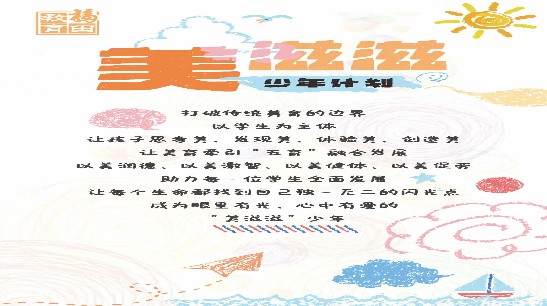 福田教育
美滋滋
少年计划
打破传统美育的边界
以学生为主体
让孩子思考美、发现美、体验美、创造美
让美育牵引“五育”融合发展
以美润德、以美激智、以美健体、以美促劳
助力每一位学生全面发展
让每个生命都找到自己独一无二的闪光点
成为眼里有光、心中有爱的
“美滋滋”少年